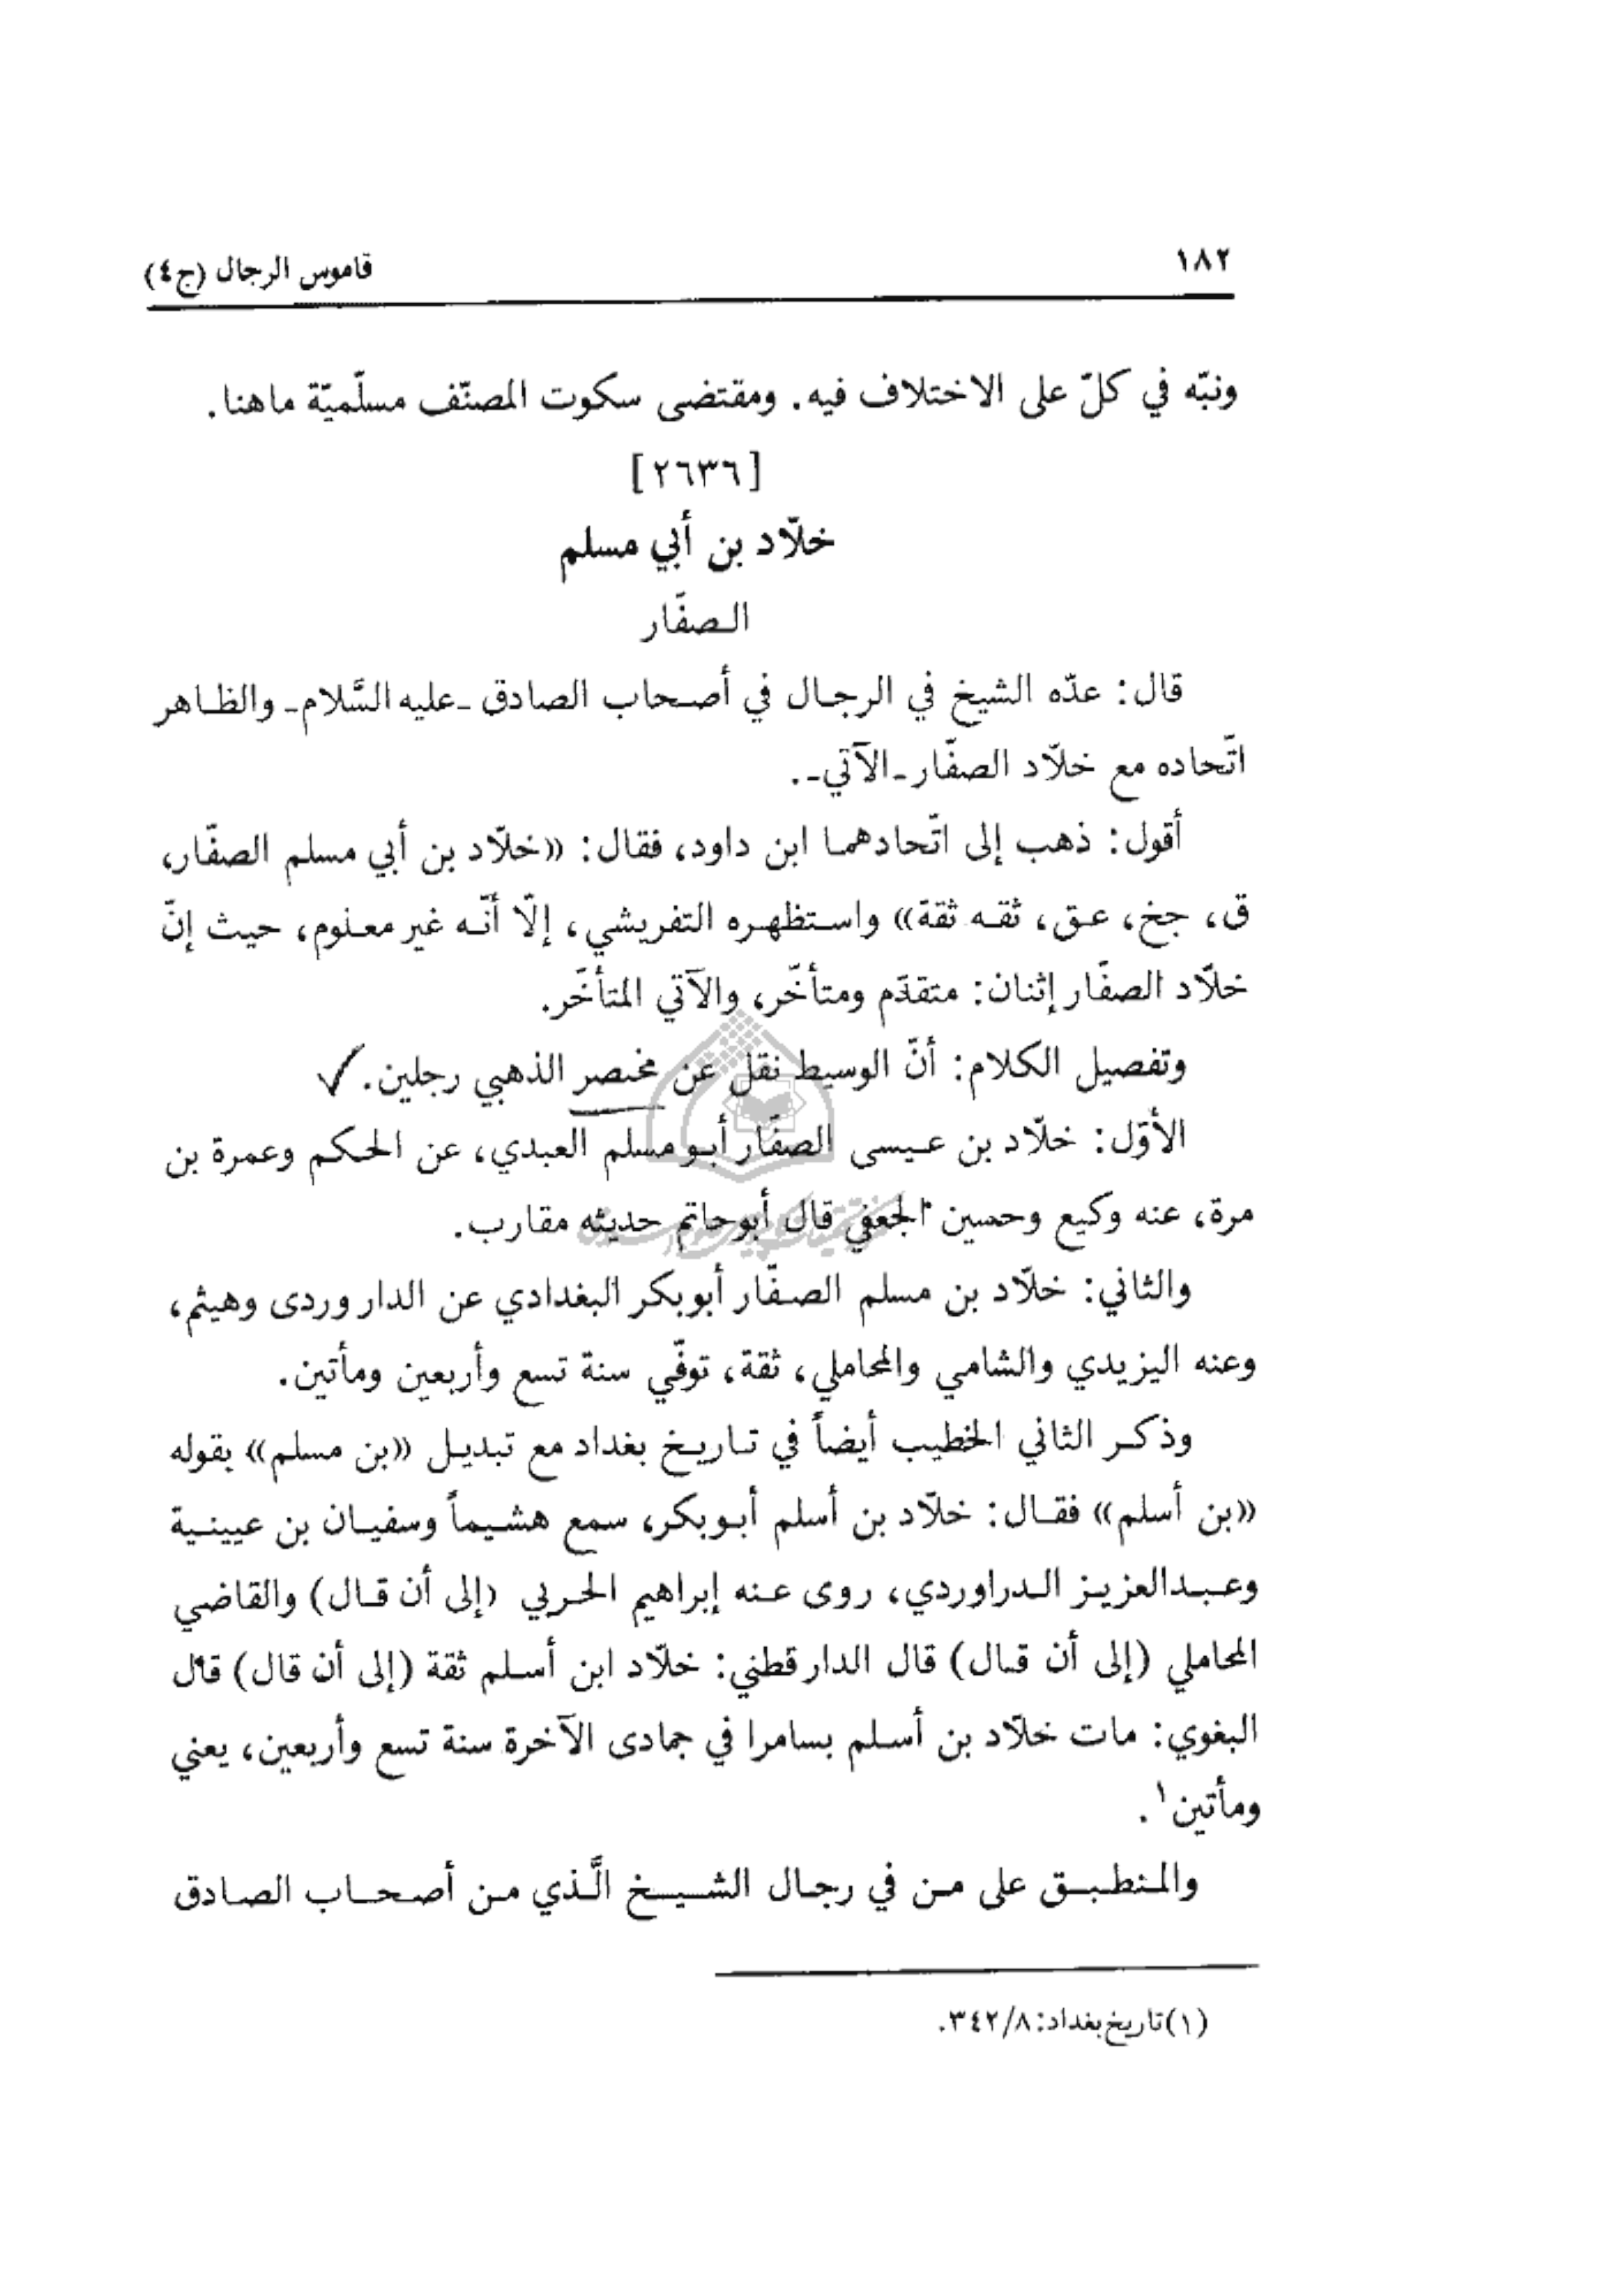 ١٨٢
قاموس الرجال (ج٤)
ونبّه في كلّ على الاختلاف فيه. ومقتضى سكوت المصنّف مسلّميّة ماهنا.
[٢٦٣٦]
خلّاد بن أبي مسلم
الصفّار
قال: عدّه الشيخ في الرجال في أصحاب الصادق ـ عليه السَّلام ـ والظاهر
اتّحاده مع خلّاد الصفّار ـ الآتي ـ.
أقول: ذهب إلى اتّحادهما ابن داود، فقال: «خلّاد بن أبي مسلم الصفّار،
ق، جخ، عق، ثقه ثقة» واستظهره التفريشي، إلّا أنّه غير معلوم، حيث إنّ
خلّاد الصفّار إثنان: متقدّم ومتأخّر، والآتي المتأخّر.
وتفصيل الكلام: أنّ الوسيط نقل عن مختصر الذهبي رجلين. ✓
الأوّل: خلّاد بن عيسى الصفّار أبومسلم العبدي، عن الحكم وعمرة بن
مرة، عنه وكيع وحسين الجعفي قال أبوحاتم حديثه مقارب.
والثاني: خلّاد بن مسلم الصفّار أبوبكر البغدادي عن الداروردى وهيثم،
وعنه اليزيدي والشامي والمحاملي، ثقة، توفّي سنة تسع وأربعين ومأتين.
وذكر الثاني الخطيب أيضاً في تاريخ بغداد مع تبديل «بن مسلم» بقوله
«بن أسلم» فقال: خلّاد بن أسلم أبوبكر، سمع هشيماً وسفيان بن عيينية
وعبدالعزيز الدراوردي، روى عنه إبراهيم الحربي (إلى أن قال) والقاضي
المحاملي (إلى أن قال) قال الدارقطني: خلّاد ابن أسلم ثقة (إلى أن قال) قال
البغوي: مات خلّاد بن أسلم بسامرا في جمادى الآخرة سنة تسع وأربعين، يعني
ومأتين١.
والمنطبق على من في رجال الشيخ الَّذي من أصحاب الصادق
(١) تاريخ بغداد: ٣٤٢/٨.